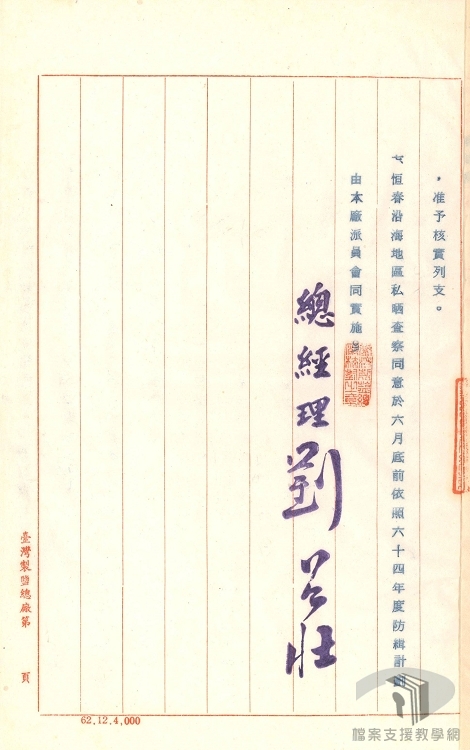 ，准予核實列支。
恒春沿海地區私晒查察同意於六月底前依照六十四年度防緝計劃
由本廠派員會同實施。
總經理劉 壯
臺灣製鹽總廠第　頁
62.12.4,000
檔案支援教學網